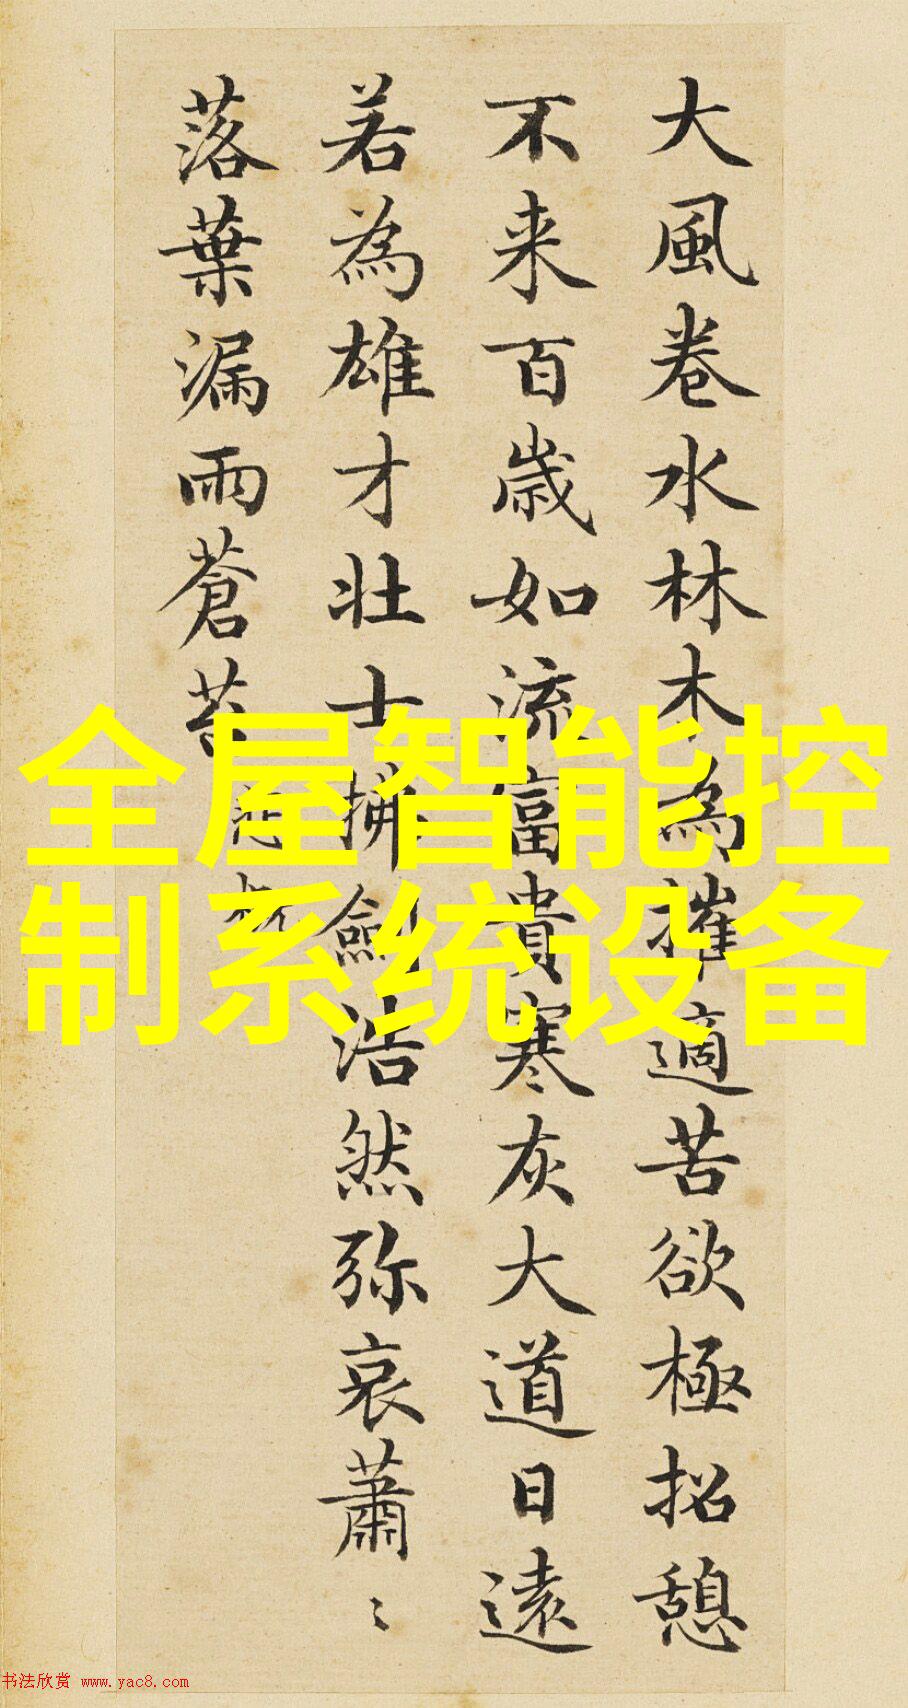 大風卷水林木為摧適苦欲極招憩
不来百歳如流富貴寒灰大道日遠
若為雄才壮士拂劍浩然弥哀蕭〻
落葉漏雨蒼苔
全屋智能控
制系统设备
书法欣赏 www.yac8.com